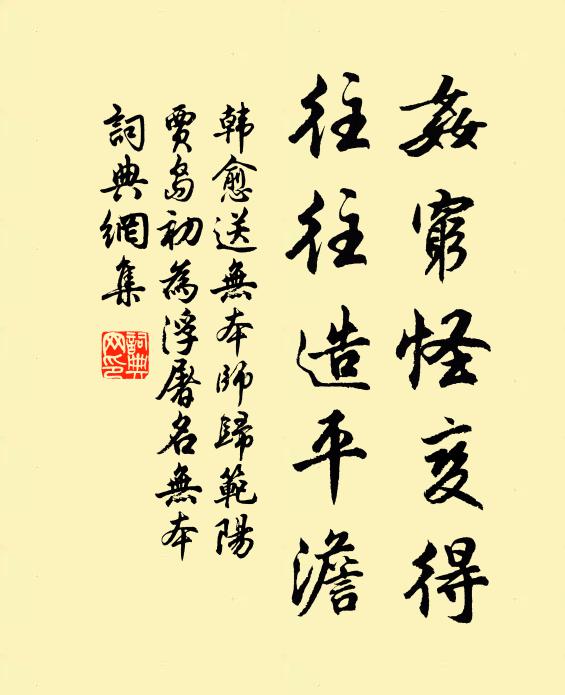 姦窮怪变得
往往造平澹
韩愈送無本師歸範陽
賈島初為浮屠名無本
詞典網集
詞典网印